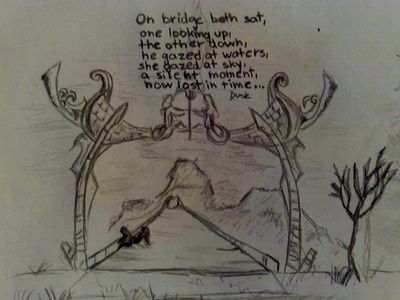 On bridge both sat,
one looking up,
the other down,
he gazed at waters,
she gazed at sky,
a silent moment,
now lost in time...
Dusk